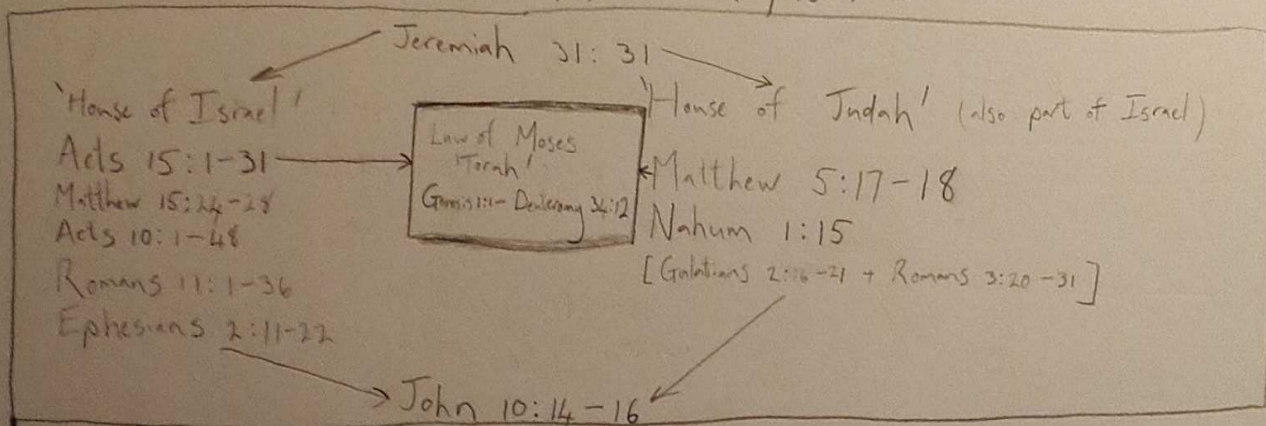 Jeremiah 31:31
'House of Israel'
Acts 15:1-31
Matthew 15:24-28
Acts 10:1-48
Romans 11:1-36
Ephesians 2:11-22
Law of Moses
'Torah'
Genesis 1:1 - Deuterony 34:12
'House of Judah' (also part of Israel)
Matthew 5:17-18
Nahum 1:15
[Galatians 2:16-21 + Romans 3:20-31]
John 10:14-16